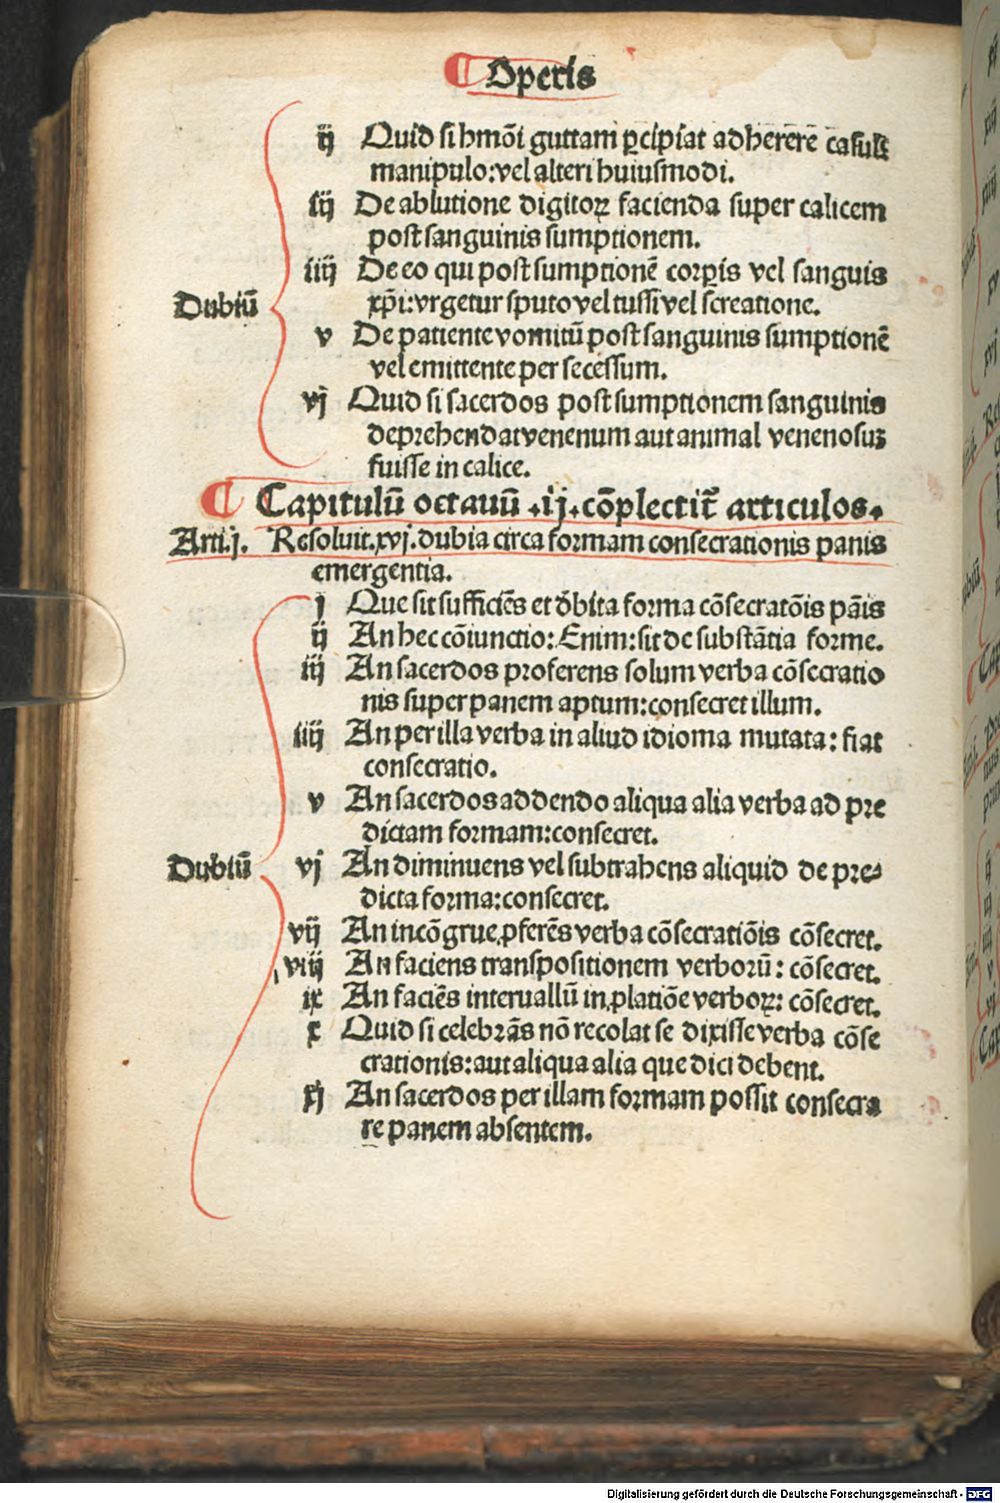 ¶ Operis
ij Quid si hmōi guttam ꝑcipiat adherere casule
manipulo: vel alteri huiusmodi.
iij De ablutione digitoꝝ facienda super calicem
post sanguinis sumptionem.
iiij De eo qui post sumptionē corꝑis vel sanguis
xp̄i: vrgetur sputo vel tussi vel screatione.
Dubiū v De patiente vomitū post sanguinis sumptionē
vel emittente per secessum.
vj Quid si sacerdos post sumptionem sanguinis
deprehendat venenum aut animal venenosuꝫ
fuisse in calice.
¶ Capitulū octauū .ij. cōplectit̄ articulos.
Arti.j. Resoluit.xvj.dubia circa formam consecrationis panis
emergentia.
j Que sit sufficiēs et dēbita forma cōsecratōis pāis
ij An hec cōiunctio: Enim: sit de substātia forme.
iij An sacerdos proferens solum verba cōsecratio
nis super panem aptum: consecret illum.
iiij An per illa verba in aliud idioma mutata: fiat
consecratio.
v An sacerdos addendo aliqua alia verba ad pre
dictam formam: consecret.
Dubiū vj An diminuens vel subtrahens aliquid de pre⸗
dicta forma: consecret.
vij An incōgrue ꝓferēs verba cōsecratiōis cōsecret.
viij An faciens transpositionem verborū: cōsecret.
ix An faciēs interuallū in ꝓlatiōe verboꝝ: cōsecret.
x Quid si celebrās nō recolat se dixisse verba cōse
crationis: aut aliqua alia que dici debent.
xj An sacerdos per illam formam possit consecra
re panem absentem.
Digitalisierung gefördert durch die Deutsche Forschungsgemeinschaft - DFG